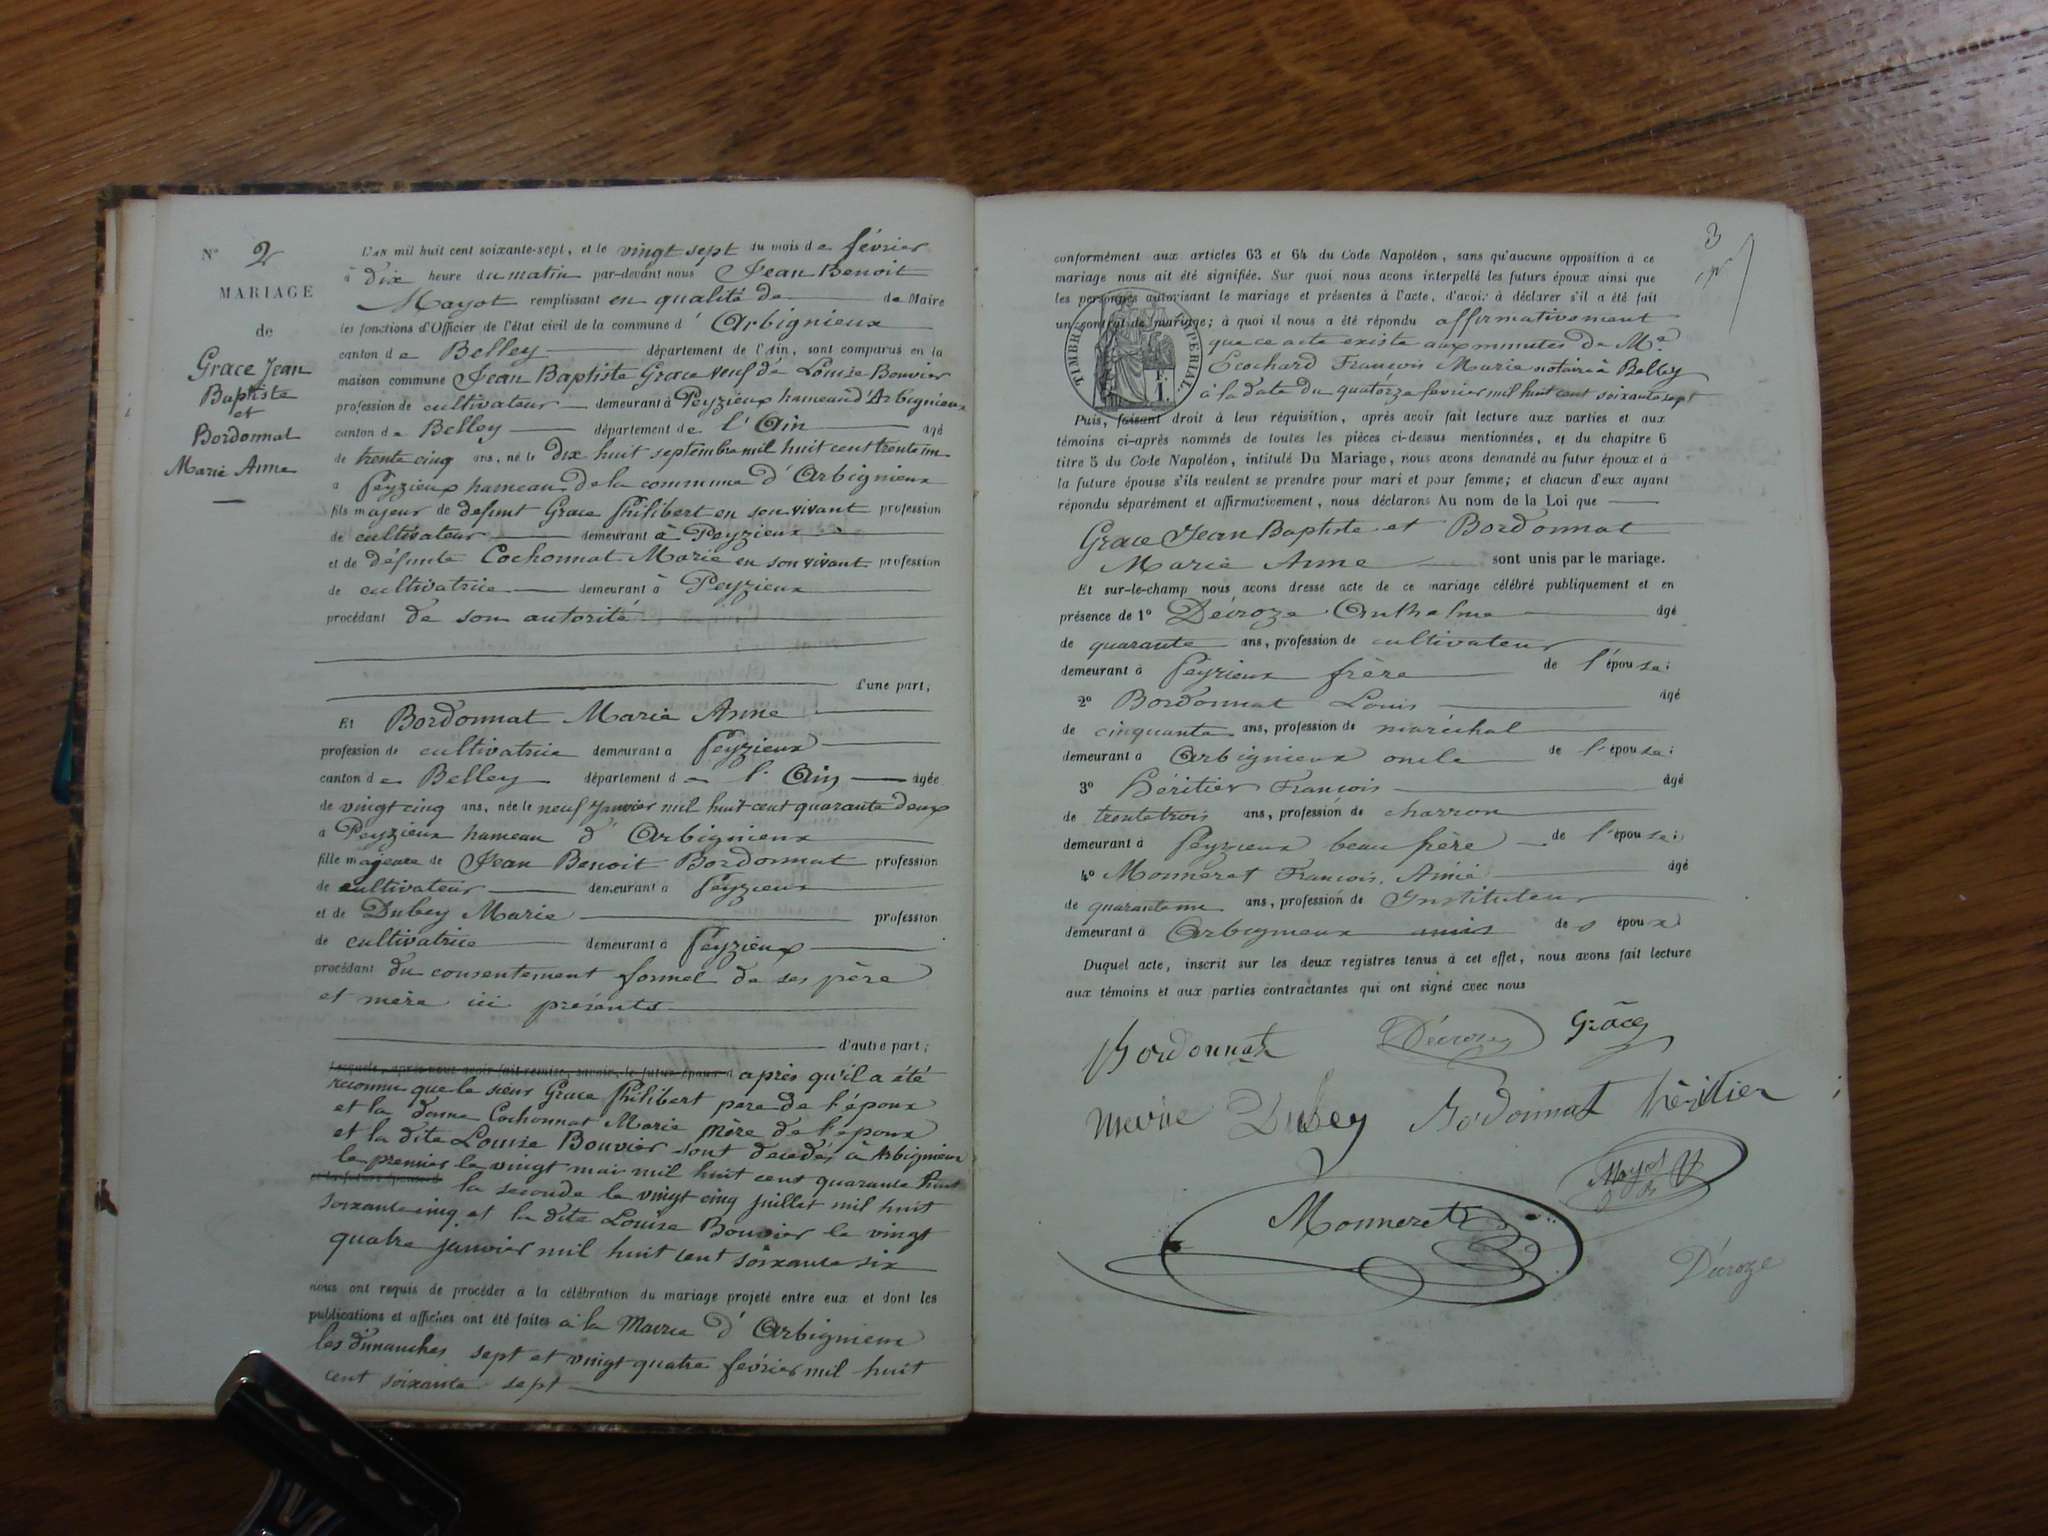 N° 2
MARIAGE
de
Grace Jean
Baptiste
et
Bordonnat
Marie Anne
L'AN mil huit cent soixante-sept, et le vingt sept du mois de février
à dix heure du matin par-devant nous Jean Benoit
Mayot remplissant en qualité de de Maire
les fonctions d'Officier de l'état civil de la commune d' Arbignieux
canton de Belley département de l'Ain, sont comparus en la
maison commune Jean Baptiste Grace veuf de Louise Bouvier
profession de cultivateur demeurant à Peyzieux hameau d'Arbignieux
canton de Belley département de l'Ain âgé
de trente cinq ans, né le dix huit septembre mil huit cent trente un
à Peyzieux hameau de la commune d'Arbignieux
fils majeur de defunt Grace Philibert en son vivant profession
de cultivateur demeurant à Peyzieux
et de défunte Cochonnat Marie en son vivant profession
de cultivatrice demeurant à Peyzieux
procédant de son autorité
d'une part;
Et Bordonnat Marie Anne
profession de cultivatrice demeurant à Peyzieux
canton de Belley département de l'Ain âgée
de vingt cinq ans, née le neuf Janvier mil huit cent quarante deux
à Peyzieux hameau d'Arbignieux
fille majeure de Jean Benoit Bordonnat profession
de cultivateur demeurant à Peyzieux
et de Dubey Marie profession
de cultivatrice demeurant à Peyzieux
procédant du consentement formel de ses père
et mère ici présents
d'autre part;
Lesquels, après nous avoir fait remise, savoir, le futur époux d après qu'il a été
reconnu que le sieur Grace Philibert père de l'époux
et la dame Cochonnat Marie mère de l'époux
et la dite Louise Bouvier sont décédés à Arbignieux
le premier le vingt mai mil huit cent quarante huit
la seconde le vingt cinq juillet mil huit
soixante cinq et la dite Louise Bouvier le vingt
quatre janvier mil huit cent soixante six
nous ont requis de procéder à la célébration du mariage projeté entre eux et dont les
publications et affiches ont été faites à la Mairie d'Arbignieux
les dimanches sept et vingt quatre février mil huit
cent soixante sept
3
conformément aux articles 63 et 64 du Code Napoléon, sans qu'aucune opposition à ce
mariage nous ait été signifiée. Sur quoi nous avons interpellé les futurs époux ainsi que
les personnes autorisant le mariage et présentes à l'acte, d'avoir à déclarer s'il a été fait
un contrat de mariage; à quoi il nous a été répondu affirmativement
que ce acte existe aux minutes de Me
Ecochard François Marie notaire à Belley
à la date du quatorze fevrier mil huit cent soixante sept
TIMBRE IMPERIAL
F.
1.
Puis, faisant droit à leur réquisition, après avoir fait lecture aux parties et aux
témoins ci-après nommés de toutes les pièces ci-dessus mentionnées, et du chapitre 6
titre 5 du Code Napoléon, intitulé Du Mariage, nous avons demandé au futur époux et à
la future épouse s'ils veulent se prendre pour mari et pour femme; et chacun d'eux ayant
répondu séparément et affirmativement, nous déclarons Au nom de la Loi que
Grace Jean Baptiste et Bordonnat
Marie Anne sont unis par le mariage.
Et sur-le-champ nous avons dressé acte de ce mariage célébré publiquement et en
présence de 1° Décroze Anthelme âgé
de quarante ans, profession de cultivateur
demeurant à Peyzieux frère de l'épouse;
2° Bordonnat Louis âgé
de cinquante ans, profession de maréchal
demeurant à Arbignieux oncle de l'épouse;
3° Héritier François âgé
de trente trois ans, profession de charron
demeurant à Peyzieux beau frère de l'épouse;
4° Monneret François Aimé âgé
de quarante un ans, profession de Instituteur
demeurant à Arbignieux amis des époux
Duquel acte, inscrit sur les deux registres tenus à cet effet, nous avons fait lecture
aux témoins et aux parties contractantes qui ont signé avec nous
Bordonnat Décroze Grâce
Marie Dubey Bordonnat héritier
Mayot
Monneret
Décroze